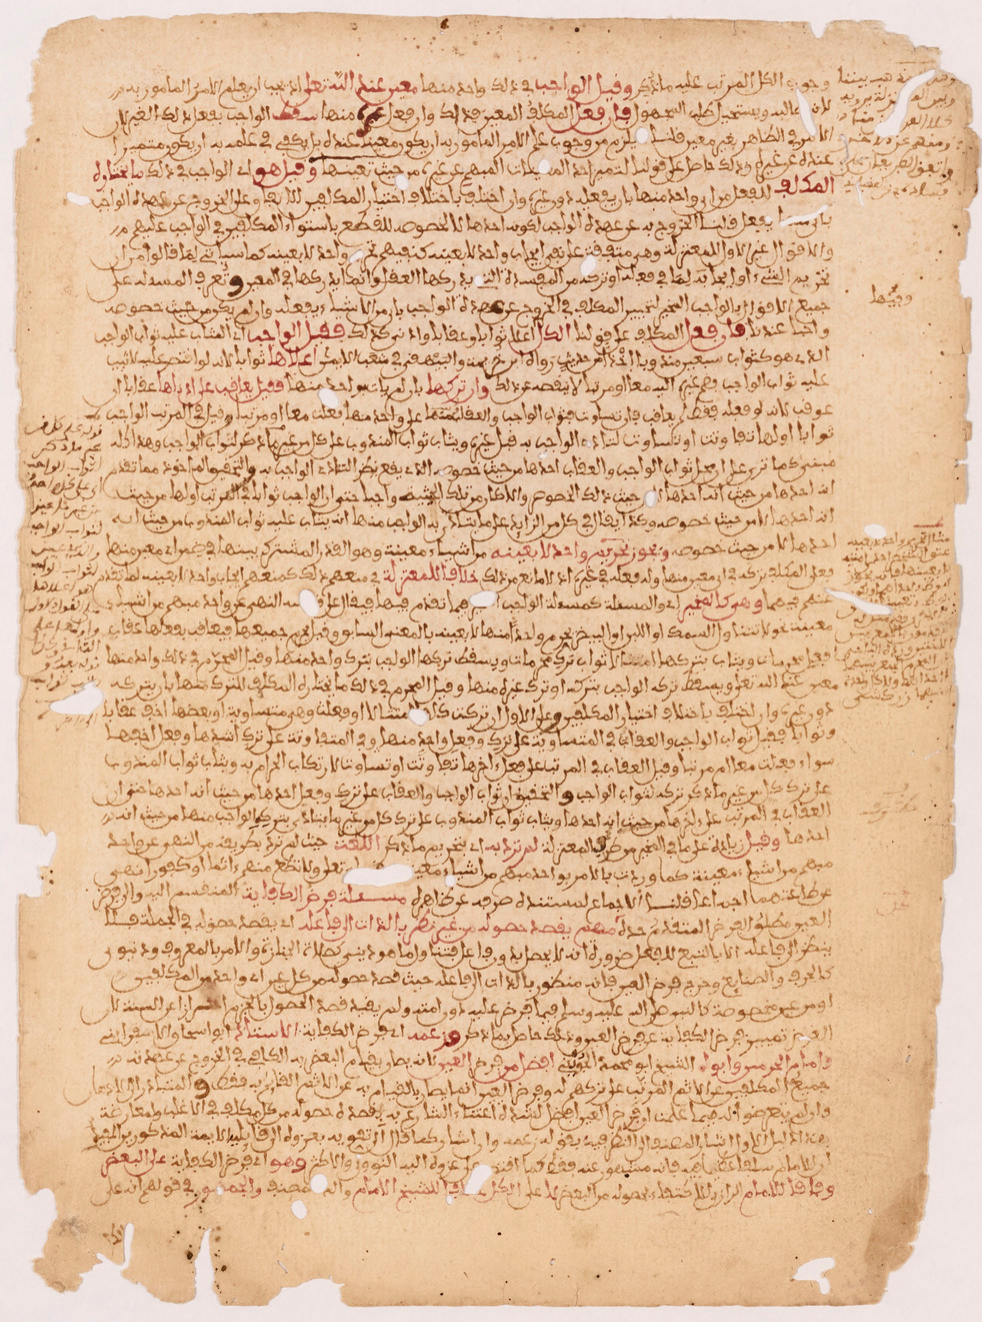 وجوب الكل المرتب عليه ما ذكر وقيل الواجب في ذلك واحد منها معين عند الله تعلى اذ يجب ان يعلم الامر المامور به
لانه طالبه ويستحيل طلب المجهول فان فعل المكلف المعين فذلك وان فعل غيره منها سقط الواجب بفعل ذلك الغير لان
الامر في الظاهر بغير معين قلنا لا يلزم من وجوب علم الامر المامور به ان يكون معينا عنده بل يكفي في علمه به ان يكون متميزا
عنده عن غيره وذلك حاصل على قولنا لتميز احد المعينات المبهم عن غيره من حيث تعينها وقيل هو اي الواجب في ذلك ما يختاره
المكلف للفعل من اي واحد منها بان يفعله دون غيره وان اختلف باختلاف اختيار المكلفين للاتفاق على الخروج عن عهدة الواجب
باي منها يفعل قلنا الخروج به عن عهدة الواجب لكونه احدها لا لخصوصه للقطع باستواء المكلفين في الواجب عليهم
والاقوال غير الاول للمعتزلة وهي متفقة على نفي ايجاب واحد لا بعينه كنفيهم تحريم واحد لا بعينه كما سياتي لما قالوا من ان
تحريم الشيء او ايجابه لما في فعله او تركه من المفسدة التي يدركها العقل وانما يدركها في المعين وتعرف المسئلة على
جميع الاقوال بالواجب المخير لتخيير المكلف في الخروج عن عهدة الواجب باي من الاشياء يفعله وان لم يكن من حيث خصوصه
واجبا عندنا فان فعل المكلف على قولنا الكل اعلا ثوابا وعقابا وادنى كذلك فقيل الواجب اي المثاب عليه ثواب الواجب
الذي هو كثواب سبعين مندوبا اخذا من حديث رواه ابن خزيمة والبيهقي في شعب الايمان اعلاها ثوابا لانه لو اقتصر عليه لاثيب
عليه ثواب الواجب فضم غيره اليه معا او مرتبا لا ينقصه عن ذلك وان تركها بان لم يات بواحد منها فقيل يعاقب على ادناها عقابا ان
عوقب لانه لو فعله فقط لم يعاقب فان تساوت فثواب الواجب والعقاب على واحد منها فعلت معا او مرتبا وقيل في المرتب الواجب
ثوابا اولها تفاوتت او تساوت لتادي الواجب به قبل غيره ويثاب ثواب المندوب على كل من غير ما ذكر لثواب الواجب وهذا كله
مبني كما ترى على ان محل ثواب الواجب والعقاب احدها من حيث خصوصه الذي يقع نظرا لتادي الواجب به والتحقيق الماخوذ مما تقدم
انه احدها من حيث انه احدها لا من حيث ذلك الخصوص والا لكان من تلك الحيثية واجبا حتى ان الواجب ثوابا في المرتب اولها من حيث
انه احدها لا من حيث خصوصه وكذا يقال في كل من الزائد على ما يتادى به الواجب منها انه يثاب عليه ثواب المندوب من حيث انه
احدها لا من حيث خصوصه ويجوز تحريم واحد لا بعينه من اشياء معينة وهو القدر المشترك بينها في ضمن اي معين منها
فعلى المكلف تركه في اي معين منها وله فعله في غيره اذ لا مانع من ذلك خلافا للمعتزلة في منعهم ذلك كمنعهم ايجاب واحد لا بعينه لما تقدم
عنهم فيهما وهي كالمخير اي والمسئلة كمسئلة الواجب المخير فيما تقدم فيها فيقال على قياسه النهي عن واحد مبهم من اشياء
معينة نحو لا تتناول السمك او اللبن او البيض يحرم واحدا منها لا بعينه بالمعنى السابق وقيل يحرم جميعها فيعاقب بفعلها عقاب
فعل محرمات ويثاب بتركها امتثالا ثواب ترك محرمات ويسقط تركها الواجب بترك واحد منها وقيل المحرم في ذلك واحد منها
معين عند الله تعلى ويسقط تركه الواجب بتركه او ترك غيره منها وقيل المحرم في ذلك ما يختاره المكلف للترك منها بان يتركه
دون غيره وان اختلف باختلاف اختيار المكلفين وعلى الاول ان تركت كلها امتثالا او فعلت وهي متساوية او بعضها اخف عقابا
وثوابا فقيل ثواب الواجب والعقاب في المتساوية على ترك وفعل واحد منها وفي المتفاوتة على ترك اشدها وفعل اخفها
سواء فعلت معا ام مرتبا وقيل العقاب في المرتب على فعل اخرها تفاوتت او تساوت لارتكاب الحرام به ويثاب ثواب المندوب
على ترك كل من غير ما ذكر تركه لثواب الواجب والتحقيق ان ثواب الواجب والعقاب على ترك وفعل احدها من حيث انه احدها حتى ان
العقاب في المرتب على اخرها من حيث انه احدها ويثاب ثواب المندوب على ترك كل من غير ما يتادى بتركه الواجب منها من حيث انه
احدها وقيل زيادة على ما في المخير من طرف المعتزلة لم ترد به اي بتحريم ما ذكر اللغة حيث لم ترد بطريقه من النهي عن واحد
مبهم من اشياء معينة كما وردت بالامر بواحد مبهم من اشياء معينة وقوله تعلى ولا تطع منهم اثما او كفورا نهي
عن طاعتهما اجماعا قلنا الاجماع لمستنده صرفه عن ظاهره مسئلة فرض الكفاية المنقسم اليه والى فرض
العين مطلق الفرض المتقدم حده مهم يقصد حصوله من غير نظر بالذات الى فاعله اي يقصد حصوله في الجملة فلا
ينظر الى فاعله الا بالتبع للفعل ضرورة انه لا يحصل بدون فاعل فتناول ما هو ديني كصلاة الجنازة والامر بالمعروف ودنيوي
كالحرف والصنائع وخرج فرض العين فانه منظور بالذات الى فاعله حيث قصد حصوله من كل عين اي واحد من المكلفين
او من عين مخصوصة كالنبي صلى الله عليه وسلم فيما فرض عليه دون امته ولم يقيد قصد الحصول بالجزم احترازا عن السنة لان
الغرض تمييز فرض الكفاية عن فرض العين وذلك حاصل بما ذكر وزعمه اي فرض الكفاية الاستاذ ابو اسحاق الاسفرايني
وامام الحرمين وابوه الشيخ ابو محمد الجويني افضل من فرض العين لانه يصان بقيام البعض به الكافي في الخروج عن عهدته
جميع المكلفين عن الاثم المرتب على تركهم له وفرض العين انما يصان بالقيام به عن الاثم القائم به فقط والمتبادر الى الاذهان
وان لم يتعرضوا له فيما علمت ان فرض العين افضل لشدة اعتناء الشارع به بقصد حصوله من كل مكلف في الاغلب ولمعارضة
هذا دليل الاول اشار المصنف الى النظر فيه بقوله زعمه وان اشار كما قال الى تقويته بعزوه الى قائليه الايمة المذكورين المفيد
ان للامام سلفا عظيما فيه فانه مشهور عنه فقط كما اقتصر على عزوه اليه النووي والاكثر وهو اي فرض الكفاية على البعض
وفاقا للامام الرازي للاكتفاء بحصوله من البعض لا على الكل خلافا للشيخ الامام والد المصنف والجمهور في قولهم انه على
وفيها